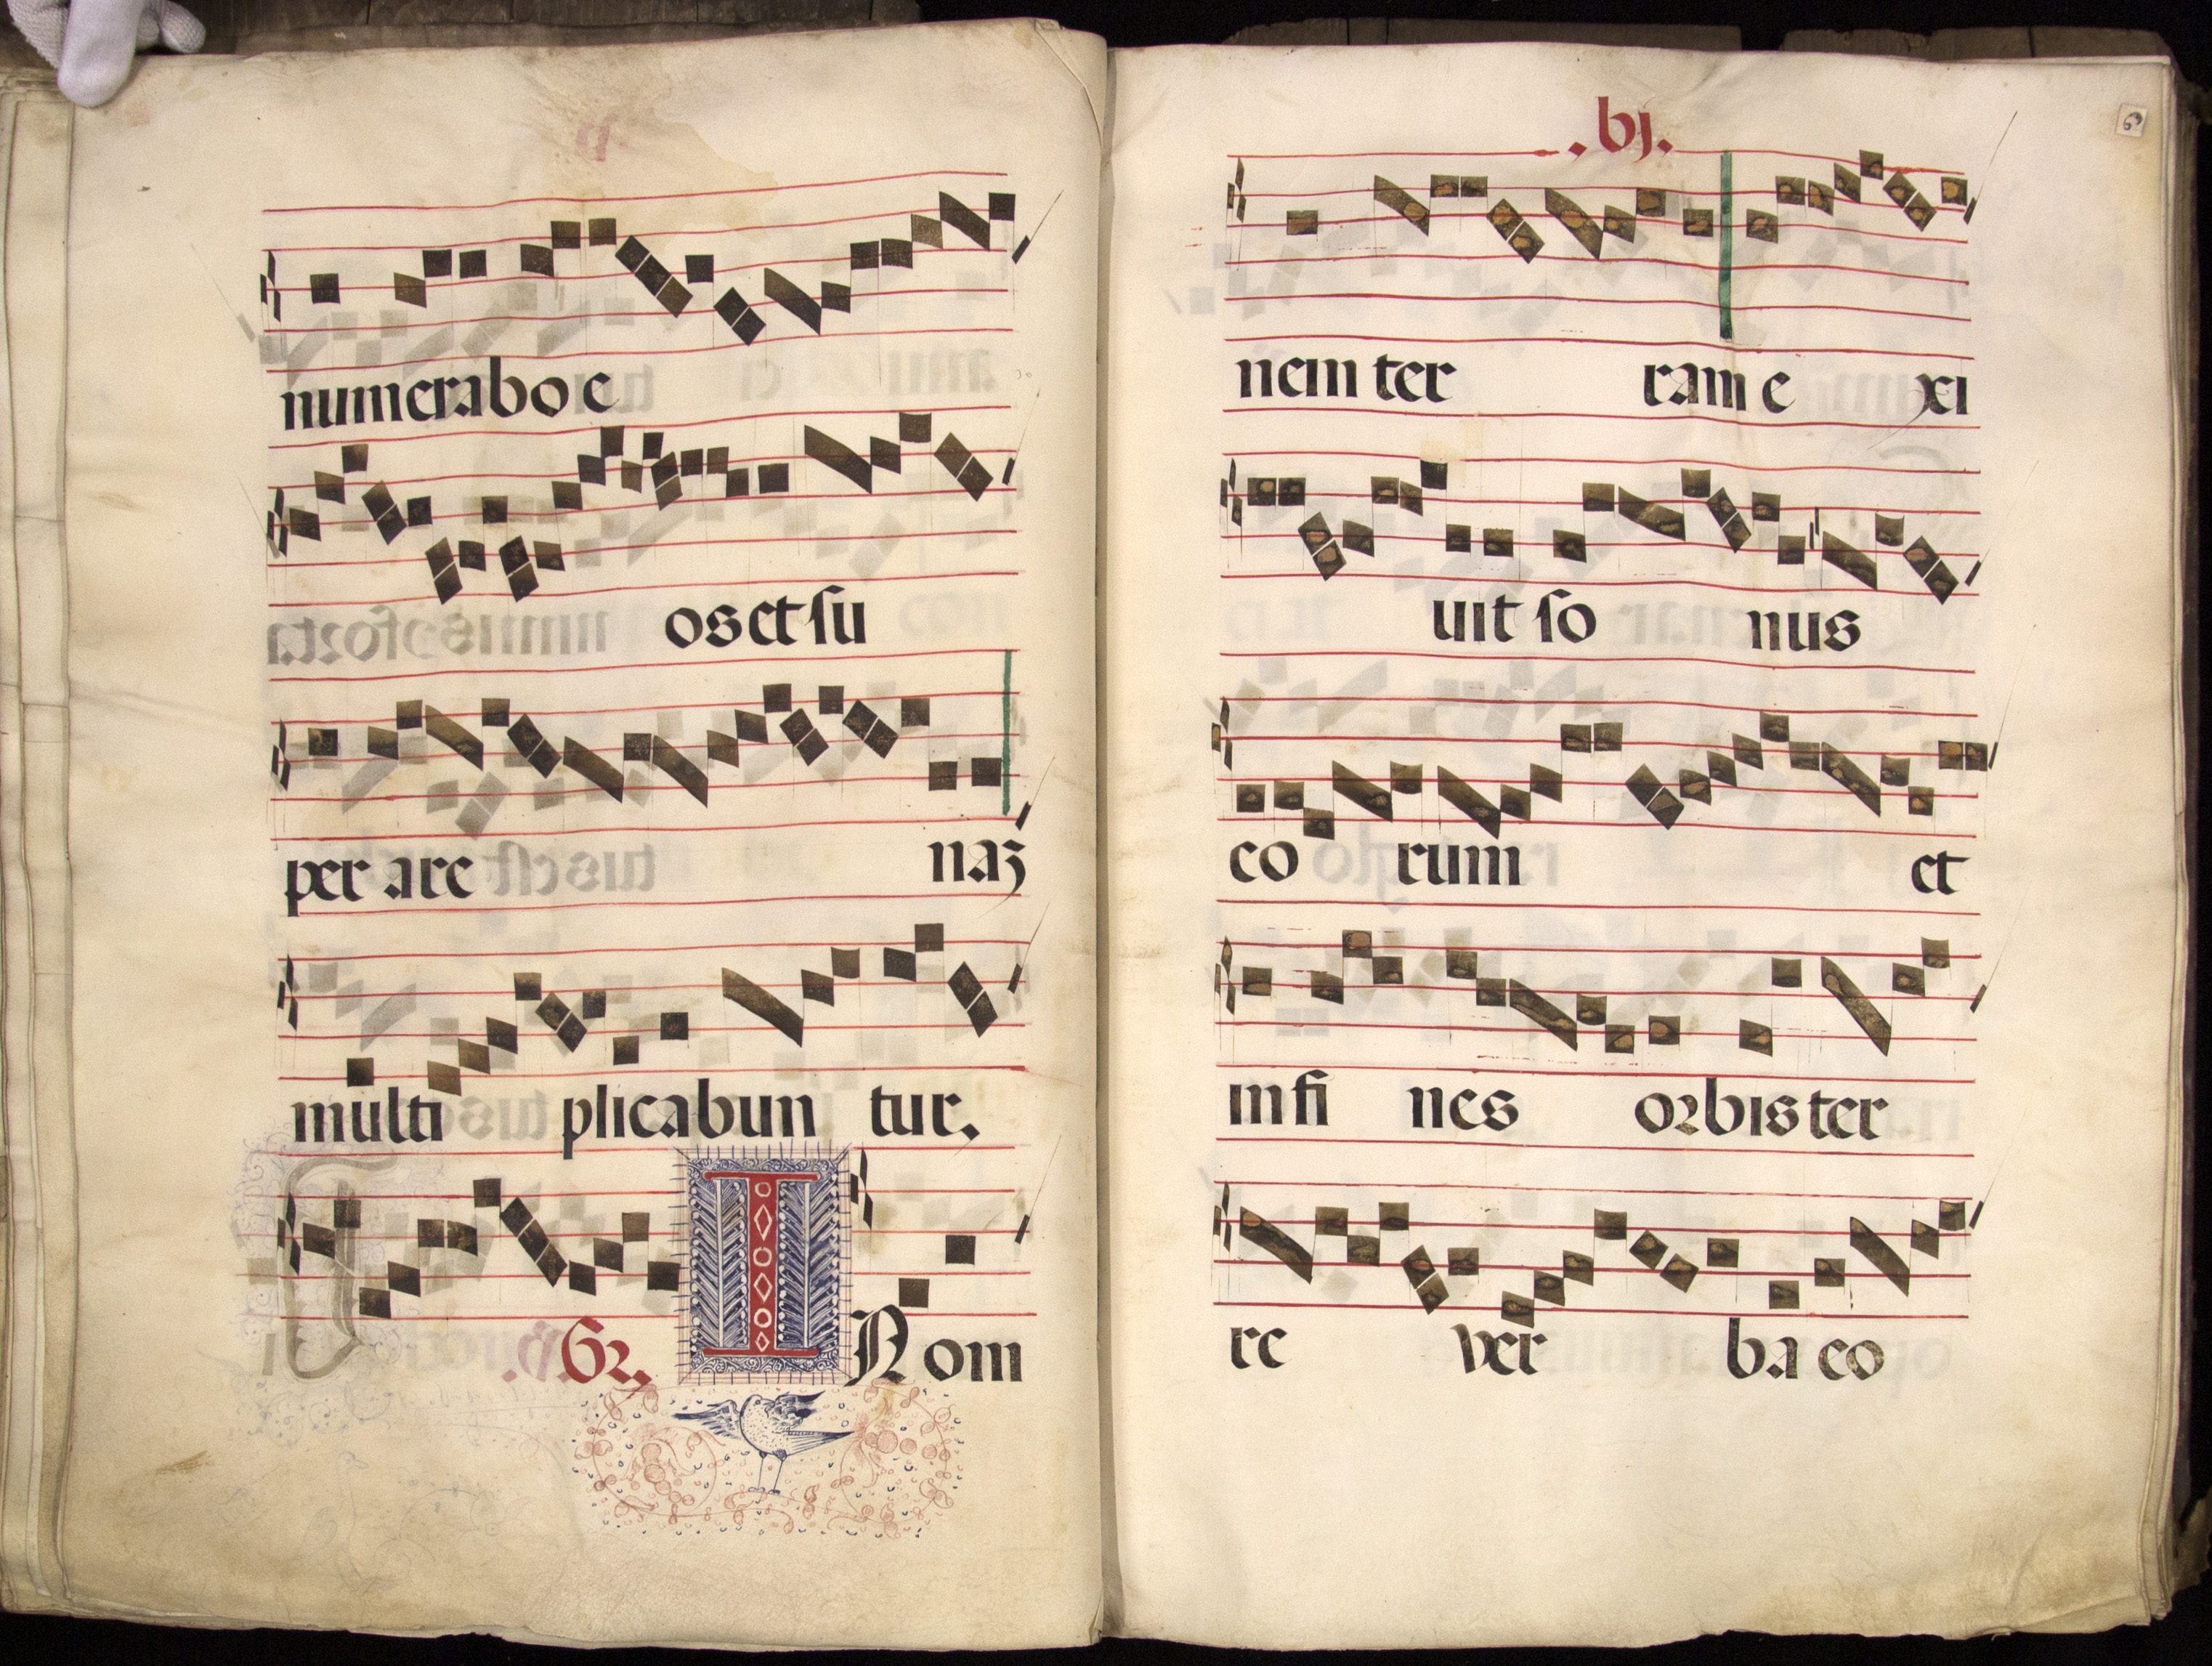 numerabo e
os et su
per are naz
multi plicabun tur.
.Gr. I N om
.bj.
nem ter ram e xi
uit so nus
eo rum et
in fi nes orbis ter
re ver ba eo